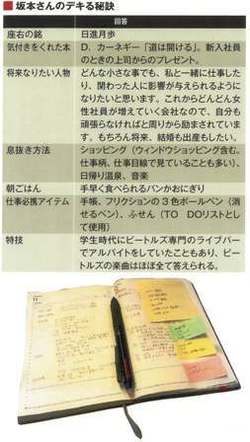 ■ 坂本さんのデキる秘訣
回答
座右の銘
日進月歩
気付きをくれた本
D．カーネギー「道は開ける」。新入社員
のときの上司からのプレゼント。
将来なりたい人物
どんな小さな事でも、私と一緒に仕事した
り、関わった人に影響が与えられるように
なりたいと思います。これからどんどん女
性社員が増えていく会社なので、自分も
頑張らなければと周りから励まされていま
す。もちろん将来、結婚も出産もしたい。
息抜き方法
ショッピング（ウィンドウショッピング含む。
仕事柄、仕事目線で見ていることも多い）、
日帰り温泉、音楽
朝ごはん
手早く食べられるパンかおにぎり
仕事必携アイテム
手帳、フリクションの3色ボールペン（消
せるペン）、ふせん（TO DOリストとし
て使用）
特技
学生時代にビートルズ専門のライブバー
でアルバイトをしていたこともあり、ビー
トルズの楽曲はほぼ全て答えられる。